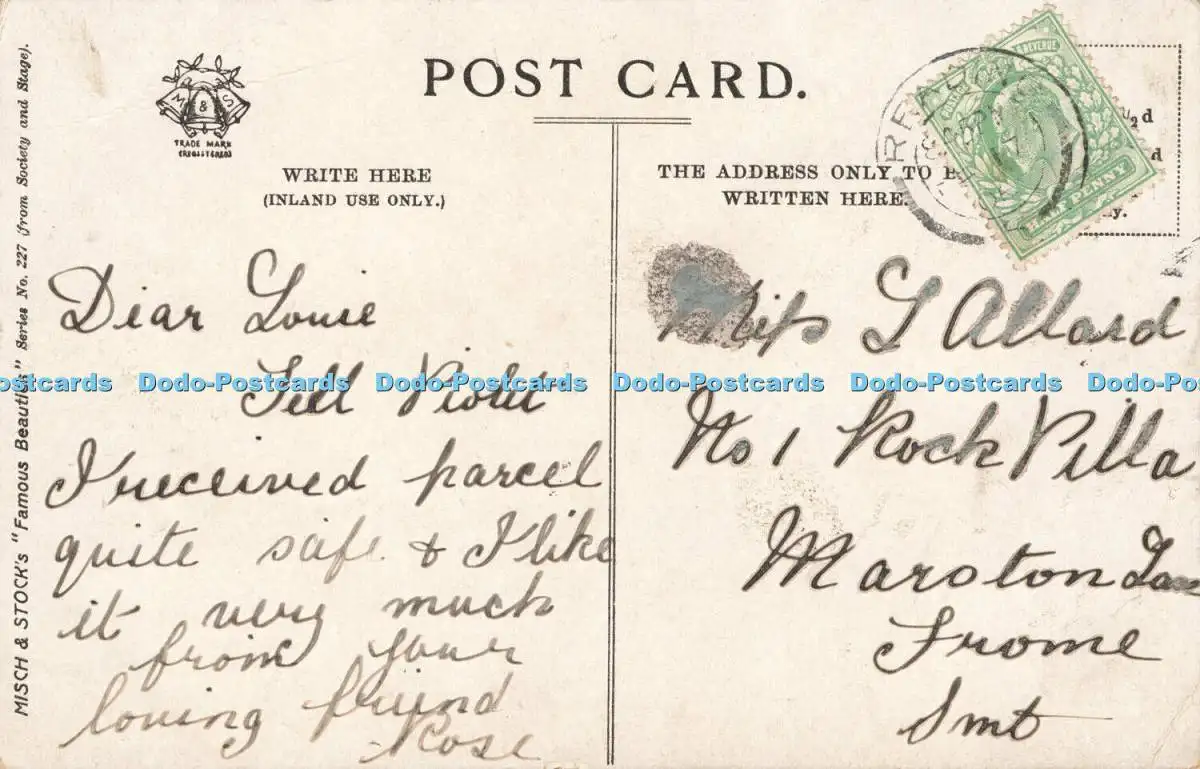 MISCH & STOCK'S "Famous Beauties" Series No. 227 (from Society and Stage).
M & S
TRADE MARK
(REGISTERED)
POST CARD.
WRITE HERE
(INLAND USE ONLY.)
Dear Louie
Tell Violet
I received parcel
quite safe & I like
it very much
from your
loving friend
Rose
THE ADDRESS ONLY TO
WRITTEN HERE.
½d
HALF PENNY
Miss L Allard
No 1 Rock Villa
Marston
Frome
Smt
Dodo-Postcards Dodo-Postcards Dodo-Postcards Dodo-Postcards